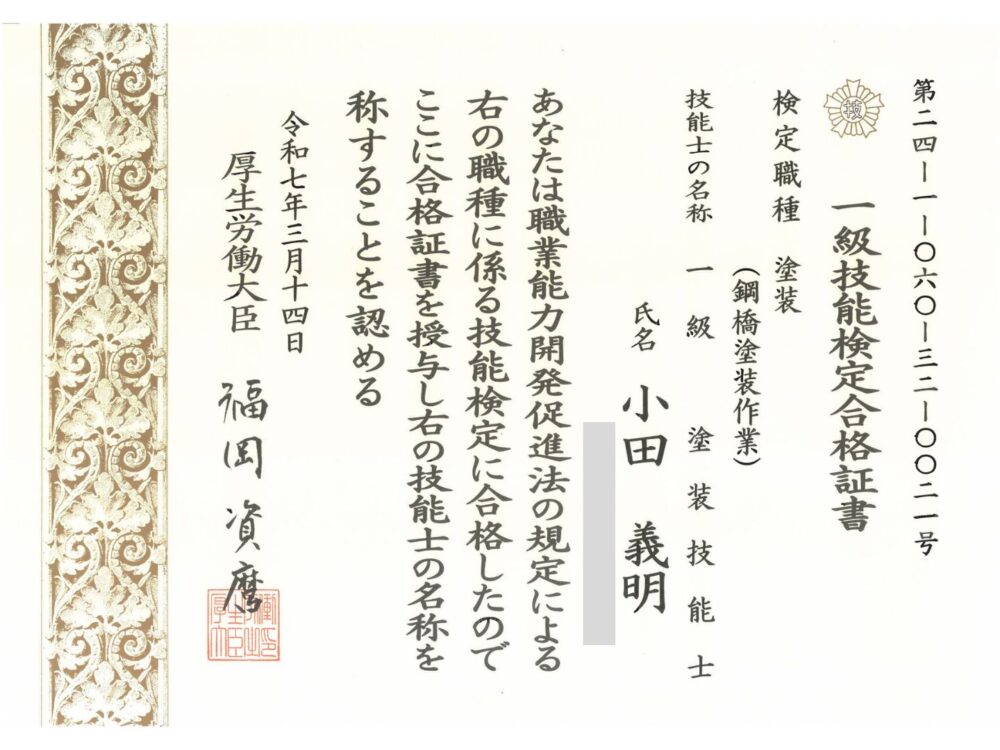 第二四ー一ー〇六〇ー三二ー〇〇二一号
技
一級技能検定合格証書
検定職種 塗装
(鋼橋塗装作業)
技能士の名称 一級 塗装技能士
氏名 小田 義明
あなたは職業能力開発促進法の規定による
右の職種に係る技能検定に合格したので
ここに合格証書を授与し右の技能士の名称を
称することを認める
令和七年三月十四日
厚生労働大臣 福岡資麿